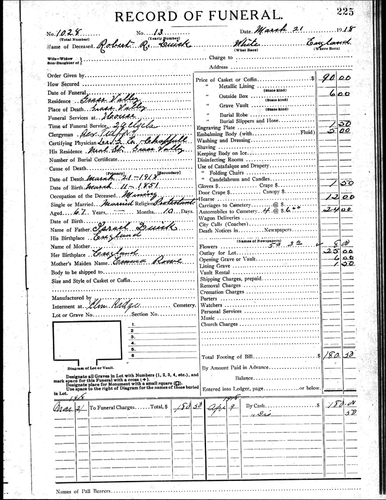 RECORD OF FUNERAL.
225
No. 1028 No. 13 Date, March 21 1918
(Total Number) (Yearly Number)
Name of Deceased, Robert R. White England
(What Race) (Where Born)
Wife—Widow
Son-Daughter of
Charge to
Address
Order Given by
How Secured
Date of Funeral
Residence Grass Valley
Place of Death Grass Valley
Funeral Services at House
Time of Funeral Service
Clergyman Rev.
Certifying Physician
His Residence Grass Valley
Number of Burial Certificate
Cause of Death
Date of Death March 21-1918
Date of Birth March 11-1851
Occupation of the Deceased Mining
Single or Married, Married Religion Protestant
Aged 67 Years — Months 10 Days.
Date of Birth
Name of Father
His Birthplace England
Name of Mother
Her Birthplace England
Mother's Maiden Name Rowe
Body to be shipped to
Size and Style of Casket or Coffin
Manufactured by
Interment at Elm Ridge Cemetery,
Lot or Grave No. Section No.
Diagram of Lot or Vault.
Designate all Graves in Lot with Numbers (1, 2, 3, 4, etc.), and
mark space for this Funeral with a room (+).
Designate place for Monument with a small square (□).
Use space to the right of Diagram for the names of those buried
in Lot.
Price of Casket or Coffin 90.00
" Metallic Lining
(State Kind)
" Outside Box 6.00
(State Kind)
" Grave Vault
(State Kind)
" Burial Robe
(State Kind)
" Burial Slippers and Hose
Engraving Plate 1.50
Embalming Body (with Fluid) 5.00
Washing and Dressing
Shaving
Keeping Body on Ice
Disinfecting Rooms
Use of Catafalque and Drapery
" Folding Chairs
" Candelabrum and Candles
Gloves $ Crape $ 1.50
Door Crape $ Canopy $
Hearse 12.00
Carriages to Cemetery @ $
Automobiles to Cemetery 4 @ $6.00 24.00
Wagon Deliveries
City Calls (Coaches)
Death Notices in Newspapers
(Names of Newspapers)
Flowers
Outlay for Lot 25.00
Opening Grave or Vault
Lining Grave 1.50
Vault Rental
Shipping Charges, prepaid
Removal Charges
Cremation Charges
Porters
Watchers
Personal Services
Music
Church Charges
Total Footing of Bill $ 180.50
By Amount Paid in Advance
Balance
Entered into Ledger, page or below.
1918 1918
Mar 21 To Funeral Charges Total, $ 180.50 Apr 9 By Cash $
Names of Pall Bearers